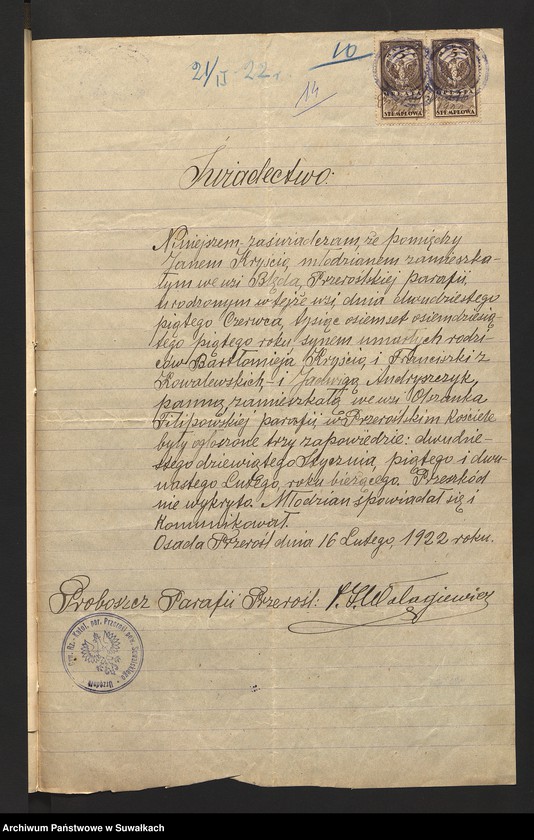 10
21/II 22 r.
14
STEMPLOWA
STEMPLOWA
Świadectwo.
Niniejszem zaświadczam, że pomiędzy
Janem Kryścio młodzianem zamieszka-
łym we wsi Błęda, Przeroślskiej parafii,
urodzonym w tejże wsi dnia dwudziestego
piątego Czerwca, tysiąc osiemset osiemdziesią-
tego piątego roku synem umarłych rodzi-
ców Bartłomieja Kryścio i Franciszki z
Kowalewskich - i Jadwigą Andryszczyk
panną zamieszkałą we wsi Olszanka
Filipowskiej parafii w Przeroślskim Kościele
były ogłoszone trzy zapowiedzie: dwudzie-
stego dziewiątego Stycznia, piątego i dwu-
nastego Lutego, roku bieżącego. Przeszkód
nie wykryto. Młodzian spowiadał się i
Kommunikował.
Osada Przerośl dnia 16 Lutego, 1922 roku.
Proboszcz Parafii Przerośl:
Archiwum Państwowe w Suwałkach